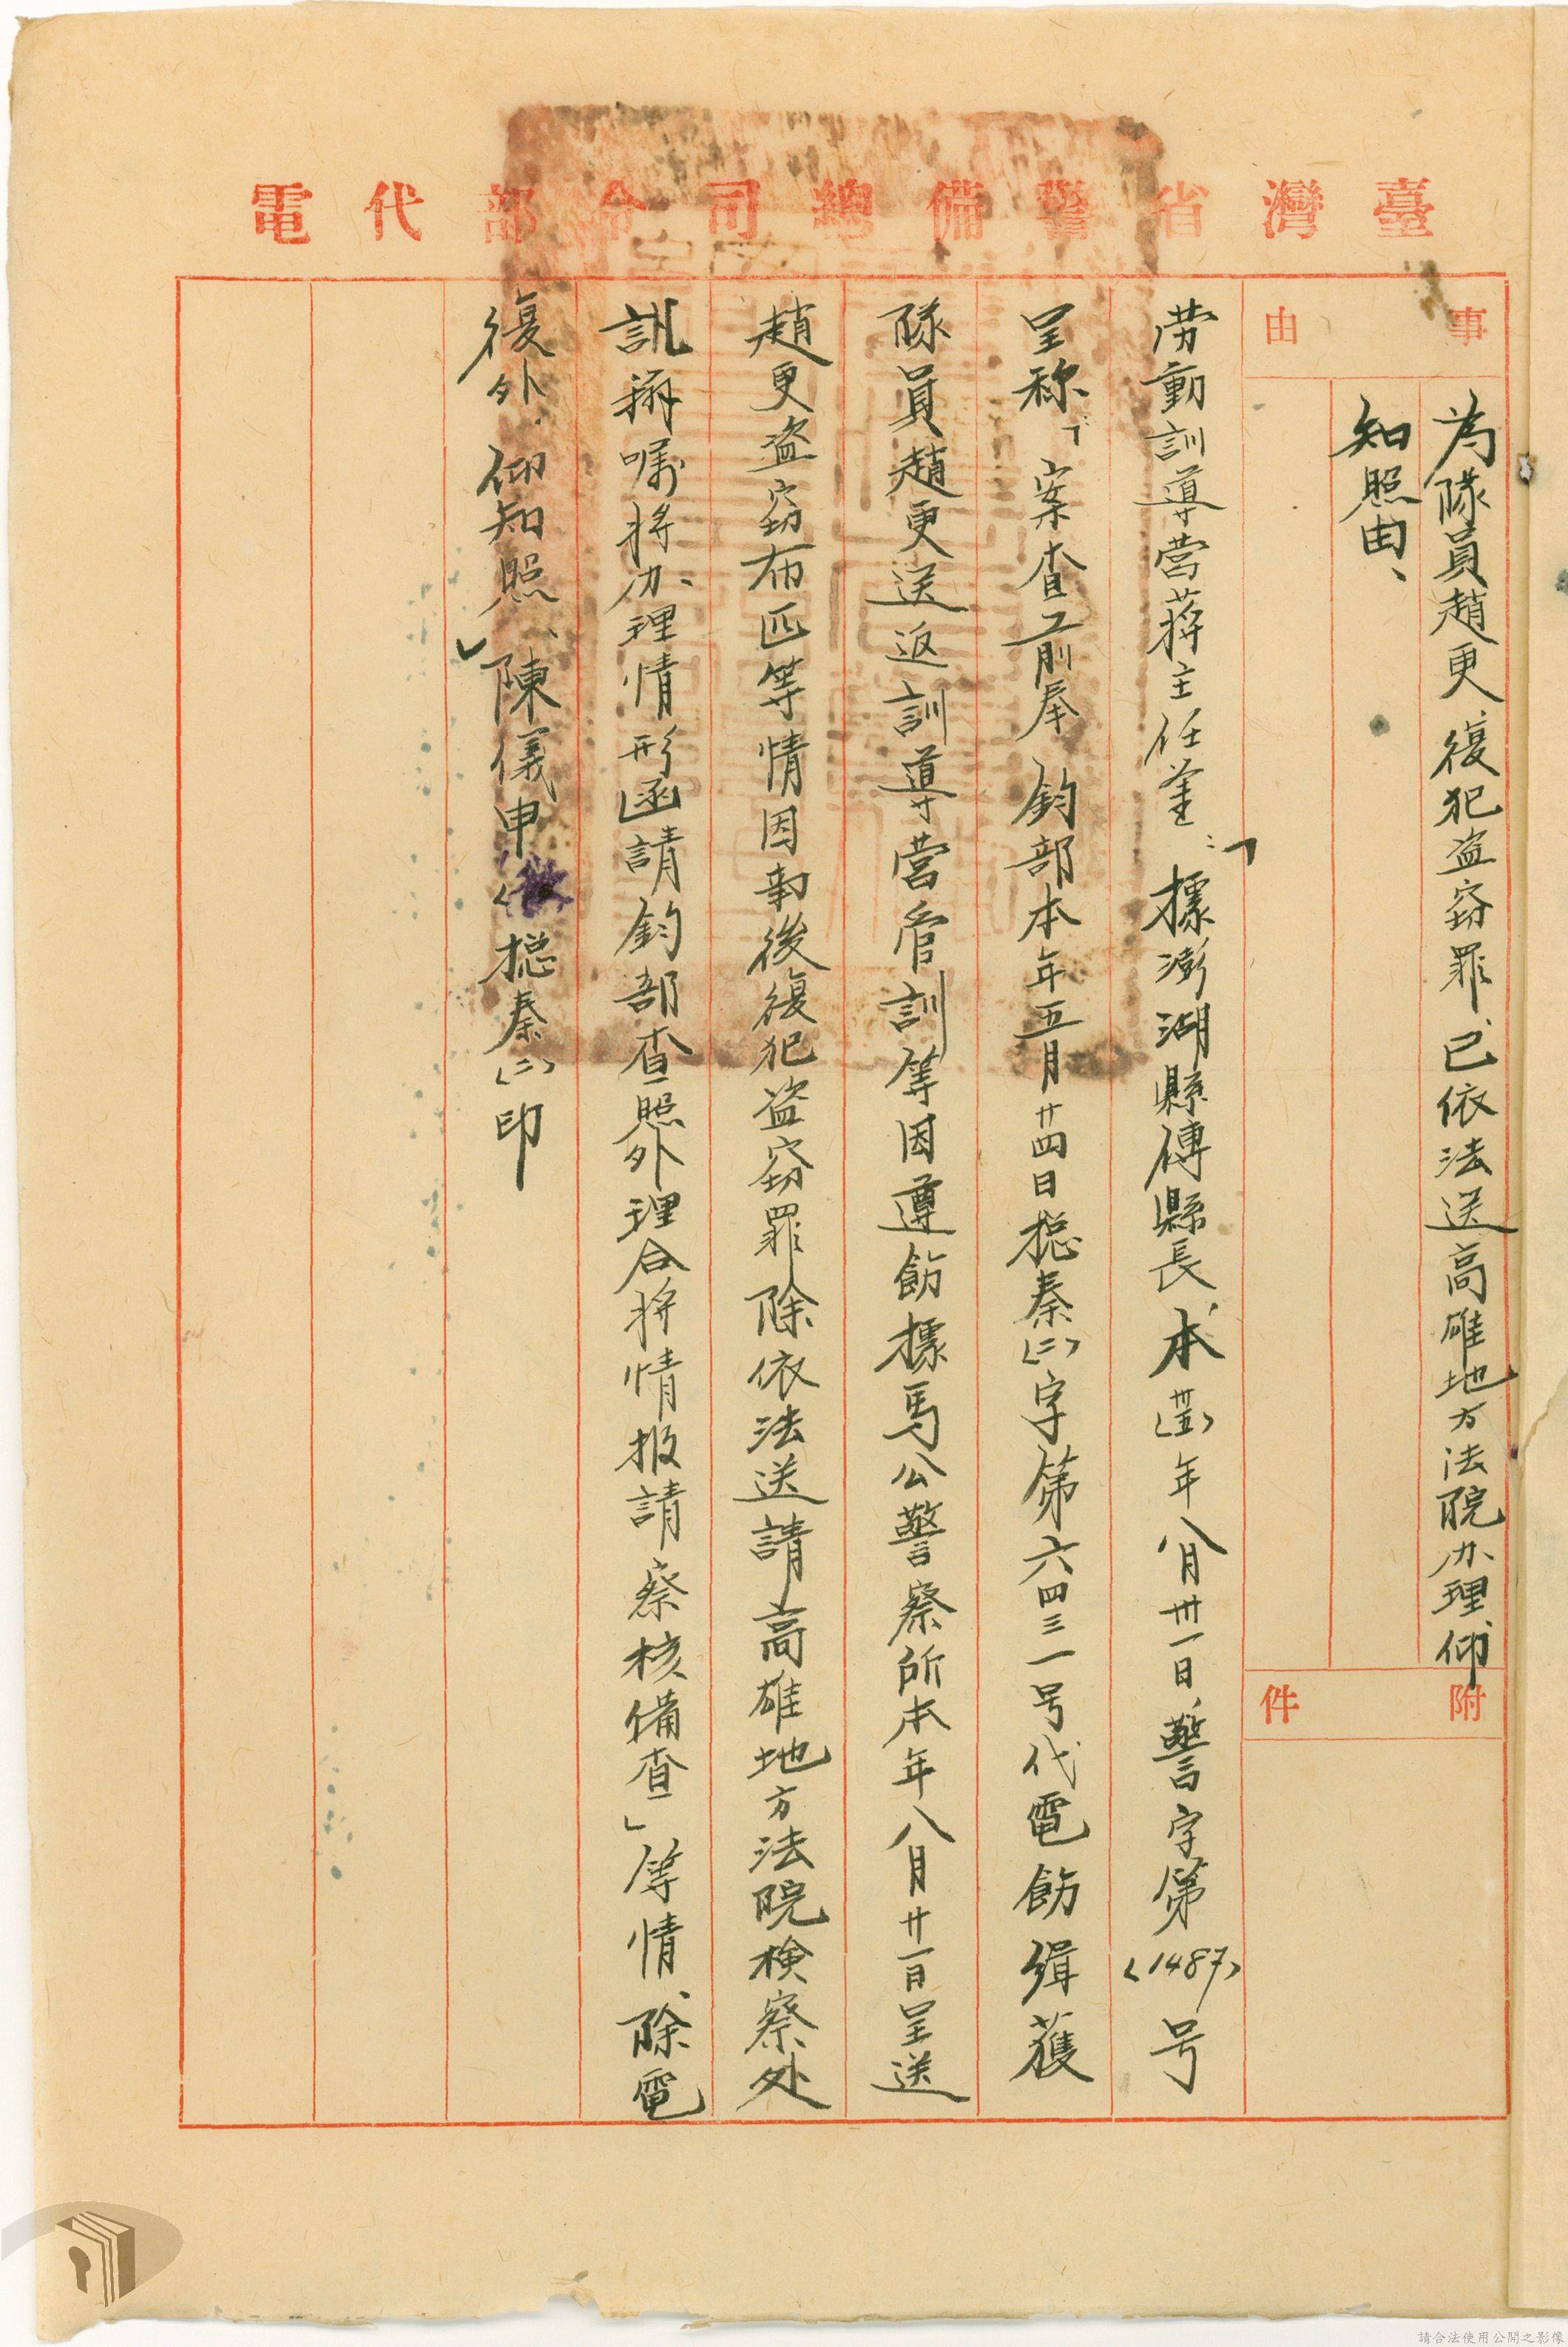 臺灣省警備總司令部代電
事由
為隊員趙更復犯盜竊罪、已依法送高雄地方法院办理、仰
知照由、
附件
劳動訓導营蔣主任鉴：「據澎湖縣傅縣長本(卅五)年八月卅一日警字第(1487)号
呈称、「案查前奉鈞部本年五月廿四日摠秦(二)字第六四三一号代電飭緝獲
隊員趙更送返訓導营管訓等因遵飭據馬公警察所本年八月廿一日呈送
趙更盗窃布匹等情因南後復犯盗窃罪除依法送請高雄地方法院検察处
訊辦嘱将办理情形函請鈞部查照外理合将情报請察核備查」等情、除電
復外、仰知照、陳儀申摠秦(二)印
請合法使用公開之影像